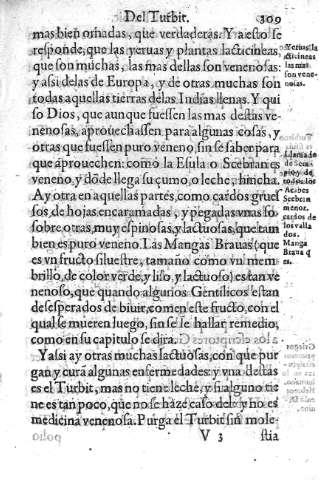 Del Turbit. 309
mas bien soñadas, que verdaderas. Y a esto se
responde, que las yeruas y plantas lacticineas,
que son muchas, las mas dellas son venenosas:
y assi delas de Europa, y de otras muchas son
todas aquellas tierras delas Indias llenas. Y qui
so Dios, que aunque fuessen las mas destas ve-
nenosas, aprouechassen para algunas cosas, y
otras que fuessen puro veneno, sin se saber para
que aprouechen: como la Esula o Scebran es
veneno, y dõde llega su çumo, o leche, hincha.
Ay otra en aquellas partes, como cardos grues
sos de hojas encaramadas, y pegadas vnas so
sobre otras, muy espinosas, y lactuosas, que tam
bien es puro veneno. Las Mangas Brauas (que
es vn fructo siluestre, tamaño como vn mem-
brillo, de color verde, y liso, y lactuoso) es tan ve
nenoso, que quando algunos Gentilicos estan
desesperados de biuir, comen este fructo, con el
qual se mueren luego, sin se le hallar remedio,
como en su capitulo se dira.
Y assi ay otras muchas lactuosas, con que pur
gan y curã algunas enfermedades: y vna destas
es el Turbit, mas no tiene leche, y si alguno tie
ne es tan poco, que no se haze caso del: y no es
medicina venenosa. Purga el Turbit sin mole-
V 3 stia
Yeruas la
cticineas
las mas
son vene-
nosas.
Scebrã
menor.
cardos de
los valla
dos.
Manga
Braua q
es.